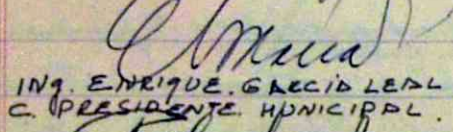 ING. ENRIQUE. GARCIA LEAL
C. PRESIDENTE. MUNICIPAL.